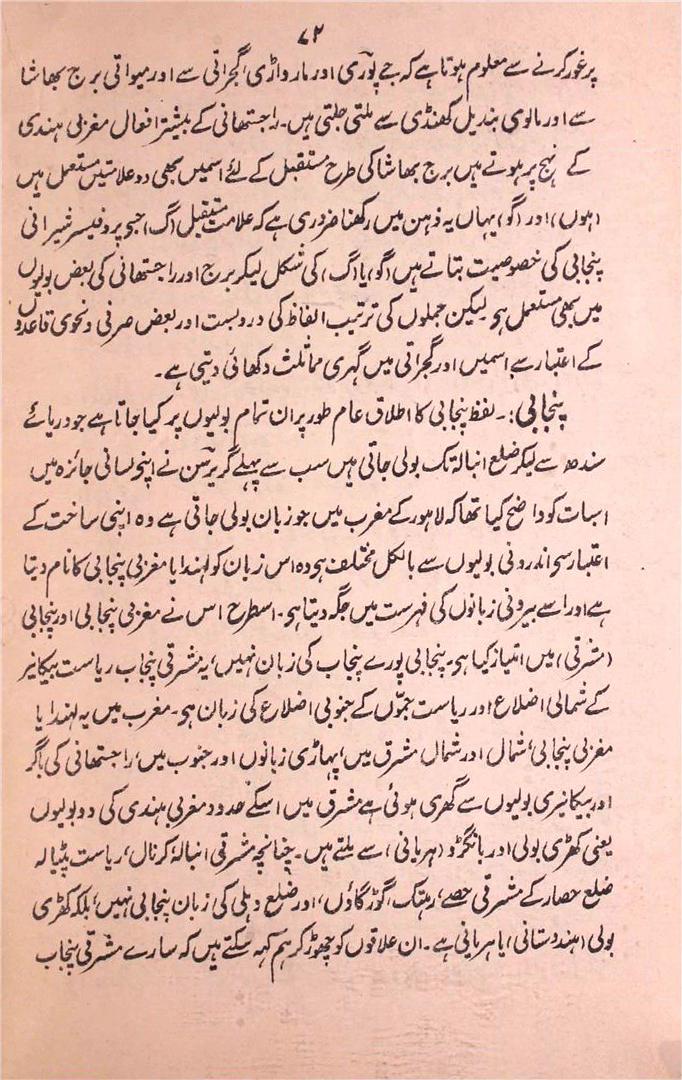 ۷۲
پر غور کرنے سے معلوم ہوتا ہے کہ جے پوری اور مارواڑی گجراتی سے اور میواتی برج بھاشا
سے اور مالوی بندیل کھنڈی سے ملتی جلتی ہیں۔ راجتھانی کے بیشتر افعال مغربی ہندی
کے نہج پر ہوتے ہیں برج بھاشا کی طرح مستقبل کے لئے اسمیں بھی دو علامتیں مستعمل ہیں
(ہوں) اور (گو) یہاں یہ ذہن میں رکھنا ضروری ہے کہ علامت مستقبل (گ) جو پروفیسر شیرانی
پنجابی کی خصوصیت بتاتے ہیں (گو) یا (گ) کی شکل لیکر برج اور راجتھانی کی بعض بولیوں
میں بھی مستعمل ہی لیکن جملوں کی ترتیب الفاظ کی دروبست اور بعض صرفی و نحوی قاعدوں
کے اعتبار سے اسمیں اور گجراتی میں گہری مماثلت دکھائی دیتی ہے۔
پنجابی:۔ لفظ پنجابی کا اطلاق عام طور پر ان تمام بولیوں پر کیا جاتا ہے جو دریائے
سندھ سے لیکر ضلع انبالہ تک بولی جاتی ہیں سب سے پہلے گریرسن نے اپنی لسانی جائزہ میں
اسبات کو واضح کیا تھا کہ لاہور کے مغرب میں جو زبان بولی جاتی ہے وہ اپنی ساخت کے
اعتبار سی اندرونی بولیوں سے بالکل مختلف ہی وہ اس زبان کو لہندا یا مغربی پنجابی کا نام دیتا
ہے اور اسے بیرونی زبانوں کی فہرست میں جگہ دیتا ہی۔ اسطرح اس نے مغربی پنجابی اور پنجابی
(مشرقی) میں امتیاز کیا ہی۔ پنجابی پورے پنجاب کی زبان نہیں، یہ مشرقی پنجاب ریاست بیکانیر
کے شمالی اضلاع اور ریاست جموں کے جنوبی اضلاع کی زبان ہی۔ مغرب میں یہ لہندا یا
مغربی پنجابی، شمال اور شمال مشرق میں، پہاڑی زبانوں اور جنوب میں، راجتھانی کی باگر
اور بیکانیری بولیوں سے گھری ہوئی ہے مشرق میں اسکے حدود مغربی ہندی کی دو بولیوں
یعنی کھڑی بولی اور بانگڑو (ہریانی) سے ملتے ہیں۔ چنانچہ مشرقی انبالہ، کرنال، ریاست پٹیالہ
ضلع حصار کے مشرقی حصے، رہتک، گوڑگاؤں، اور ضلع دہلی کی زبان پنجابی نہیں، بلکہ کھڑی
بولی (ہندوستانی) یا ہریانی ہے۔ ان علاقوں کو چھوڑ کر ہم کہہ سکتے ہیں کہ سارے مشرقی پنجاب